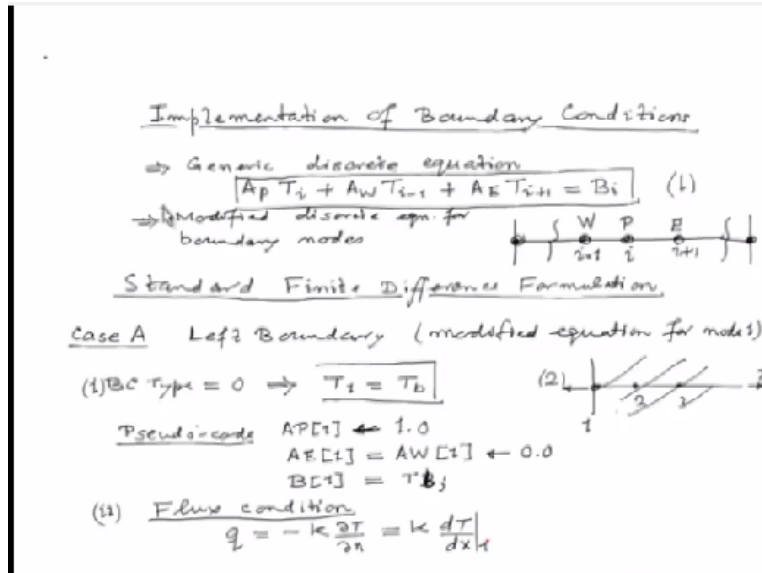 Implementation of Boundary Conditions
⇒ Generic discrete equation
A_P T_i + A_W T_{i-1} + A_E T_{i+1} = B_i (1)
⇒ Modified discrete eqn. for
boundary nodes
W P E
i-1 i i+1
Standard Finite Difference Formulation
Case A Left Boundary (modified equation for node 1)
(i) BC Type = 0 ⇒ T_1 = T_b (2)
1
Pseudo-code AP[1] ← 1.0
AE[1] = AW[1] ← 0.0
B[1] =
(ii) Flux condition
q = -k ∂T/∂n = k dT/dx|_1